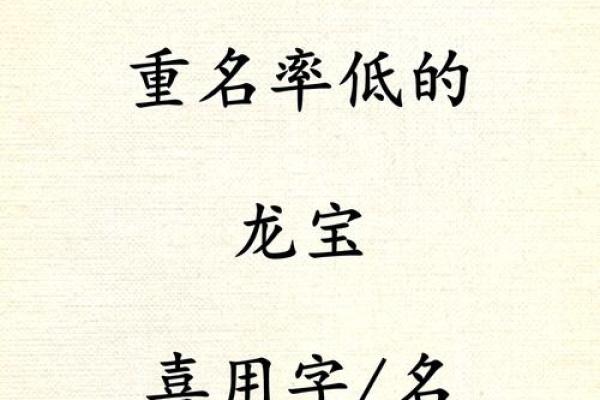 重名率低的
龙宝
喜用字/名